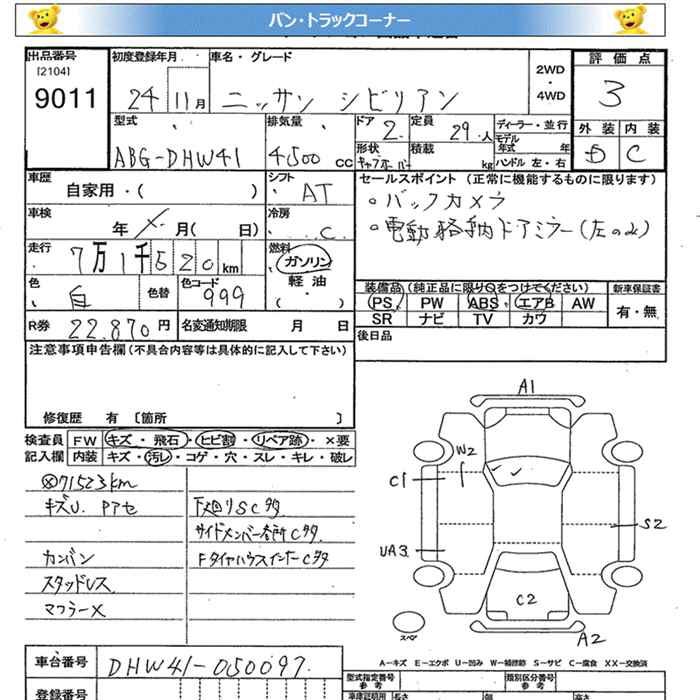 バン・トラックコーナー
出品番号
[2104]
9011
初度登録年月
24 11月
車名・グレード
ニッサン シビリアン
2WD
・
4WD
評価点
3
型式
ABG-DHW41
排気量
4500 CC
ドア
2
定員
29人
ディーラー・並行
モデル
年式 年
ハンドル 左・右
形状
積載
kg
外装 内装
D C
車歴
自家用・( )
シフト
AT
セールスポイント(正常に機能するものに限ります)
。バックカメラ
。電動格納ドアミラー(左のみ)
車検
年 月( 日)
冷房
C
走行
7万1千520km
燃料
ガソリン
軽油
・( )
色
白
色替
色コード
999
装備品(純正品に限り○をつけてください)
PS PW ABS エアB AW
SR ナビ TV カワ
新車保証書
有・無
R券
22,870円
名変通知期限 月 日
後日品
注意事項申告欄(不具合内容等は具体的に記入して下さい)
修復歴 有 〔箇所 〕
検査員
記入欄
FW キズ・飛石・ヒビ割・リペア跡・×要
内装 キズ・汚レ・コゲ・穴・スレ・キレ・破レ
71523km
キズU. Pアセ
カンバン
スタッドレス
マフラーX
下廻りSC多
サイドメンバー各所C多
FタイヤハウスインナーC多
A1
W2
C1
S2
UA3
C2
スペア
A2
A－キズ E－エクボ U－凹み W－補修跡 S－サビ C－腐食 XX－交換済
車台番号
DHW41-050097
登録番号
型式指定番号
参考
類別区分番号
参考
車庫証明用